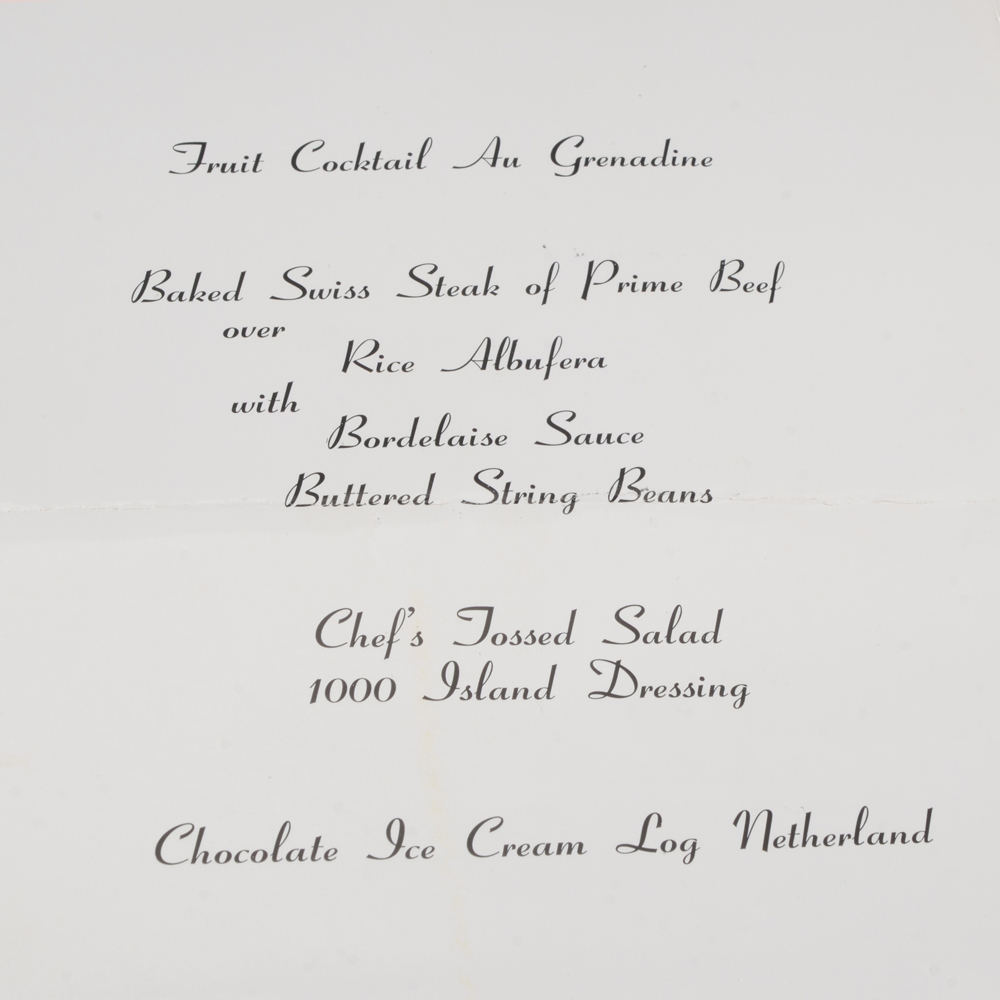 Fruit Cocktail Au Grenadine
Baked Swiss Steak of Prime Beef
over
Rice Albufera
with
Bordelaise Sauce
Buttered String Beans
Chef's Tossed Salad
1000 Island Dressing
Chocolate Ice Cream Log Netherland